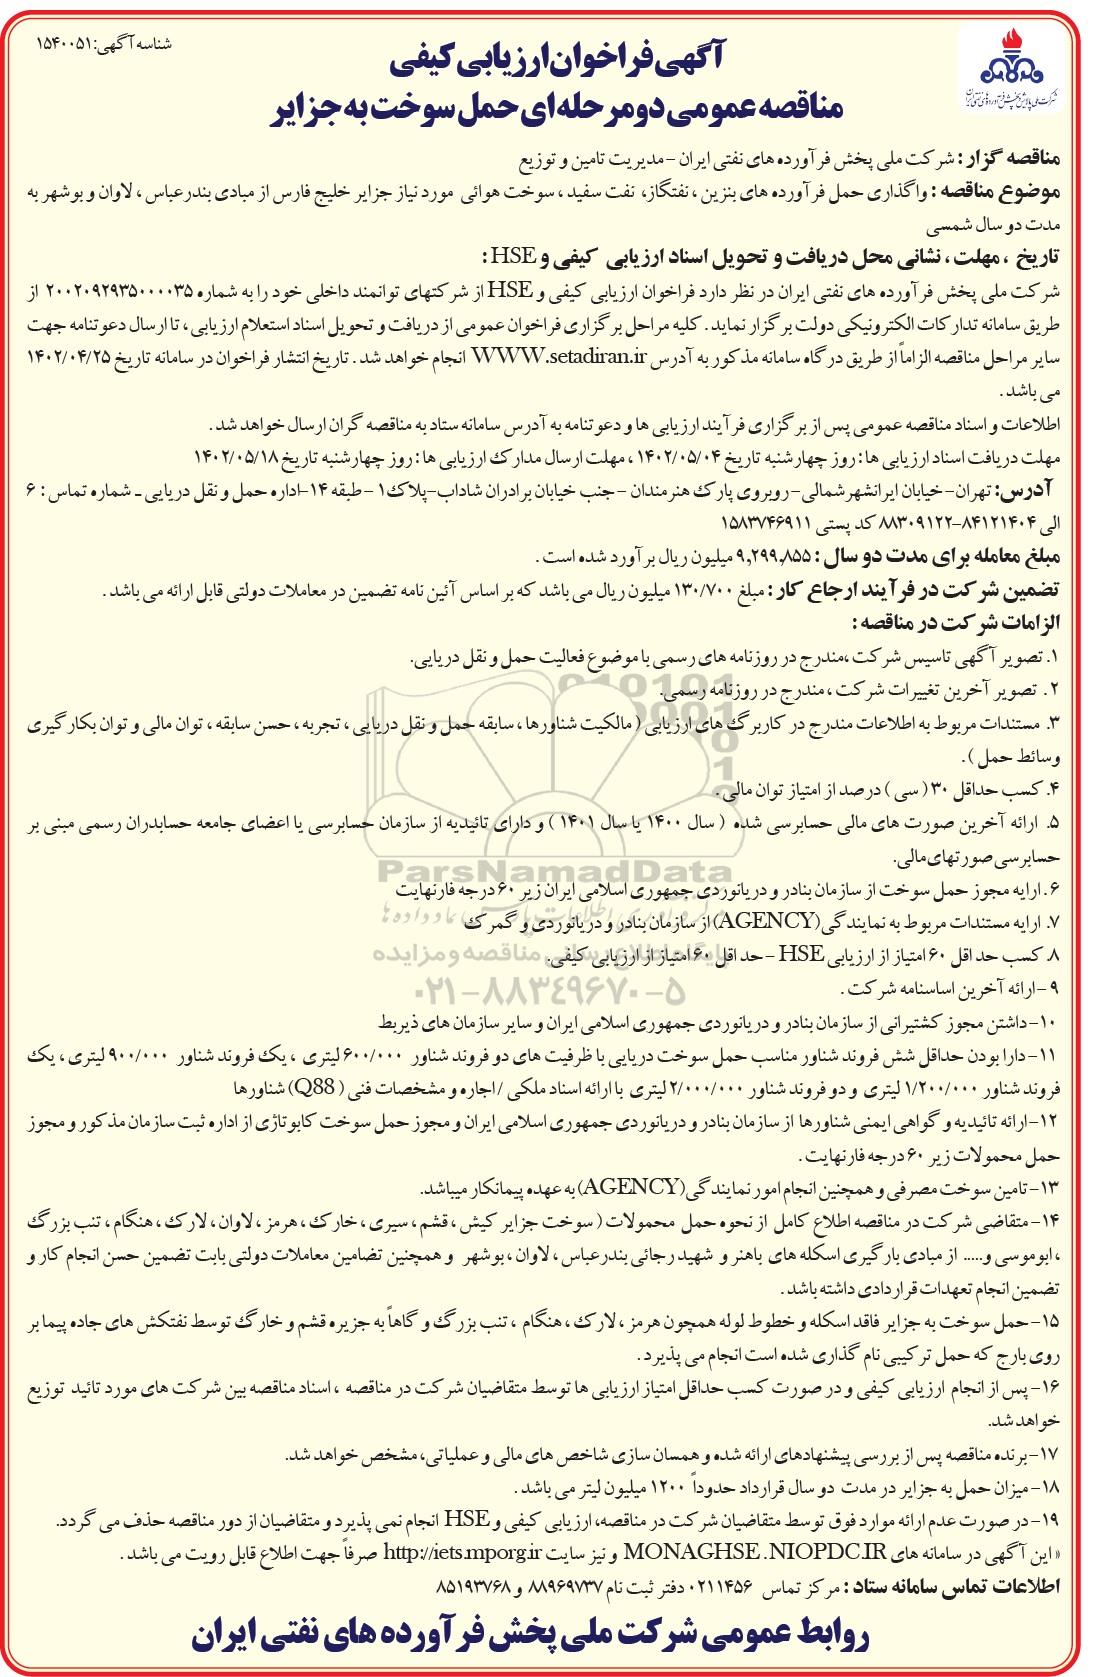 شناسه آگهی: ۱۵۴۰۰۵۱
آگهی فراخوان ارزیابی کیفی
مناقصه عمومی دو مرحله ای حمل سوخت به جزایر
مناقصه گزار : شرکت ملی پخش فرآورده های نفتی ایران - مدیریت تامین و توزیع
موضوع مناقصه : واگذاری حمل فرآورده های بنزین ، نفتگاز، نفت سفید ، سوخت هوائی مورد نیاز جزایر خلیج فارس از مبادی بندرعباس ، لاوان و بوشهر به
مدت دو سال شمسی
تاریخ ، مهلت ، نشانی محل دریافت و تحویل اسناد ارزیابی کیفی و HSE :
شرکت ملی پخش فرآورده های نفتی ایران در نظر دارد فراخوان ارزیابی کیفی و HSE از شرکتهای توانمند داخلی خود را به شماره ۲۰۰۲۰۹۲۹۳۵۰۰۰۰۳۵ از
طریق سامانه تدارکات الکترونیکی دولت برگزار نماید . کلیه مراحل برگزاری فراخوان عمومی از دریافت و تحویل اسناد استعلام ارزیابی ، تا ارسال دعوتنامه جهت
سایر مراحل مناقصه الزاماً از طریق درگاه سامانه مذکور به آدرس WWW.setadiran.ir انجام خواهد شد . تاریخ انتشار فراخوان در سامانه تاریخ ۱۴۰۲/۰۴/۲۵
می باشد .
اطلاعات و اسناد مناقصه عمومی پس از برگزاری فرآیند ارزیابی ها و دعوتنامه به آدرس سامانه ستاد به مناقصه گران ارسال خواهد شد .
مهلت دریافت اسناد ارزیابی ها : روز چهارشنبه تاریخ ۱۴۰۲/۰۵/۰۴ ، مهلت ارسال مدارک ارزیابی ها : روز چهارشنبه تاریخ ۱۴۰۲/۰۵/۱۸
آدرس: تهران - خیابان ایرانشهرشمالی - روبروی پارک هنرمندان - جنب خیابان برادران شاداب- پلاک۱ - طبقه ۱۴-اداره حمل و نقل دریایی ـ شماره تماس : ۶
الی ۸۴۱۲۱۴۰۴-۸۸۳۰۹۱۲۲ کد پستی ۱۵۸۳۷۴۶۹۱۱
مبلغ معامله برای مدت دو سال : ۹,۲۹۹,۸۵۵ میلیون ریال برآورد شده است .
تضمین شرکت در فرآیند ارجاع کار : مبلغ ۱۳۰/۷۰۰ میلیون ریال می باشد که بر اساس آئین نامه تضمین در معاملات دولتی قابل ارائه می باشد .
الزامات شرکت در مناقصه :
۱. تصویر آگهی تاسیس شرکت ،مندرج در روزنامه های رسمی با موضوع فعالیت حمل و نقل دریایی.
۲. تصویر آخرین تغییرات شرکت ، مندرج در روزنامه رسمی.
۳. مستندات مربوط به اطلاعات مندرج در کاربرگ های ارزیابی ( مالکیت شناورها ، سابقه حمل و نقل دریایی ، تجربه ، حسن سابقه ، توان مالی و توان بکارگیری
وسائط حمل ) .
۴. کسب حداقل ۳۰ ( سی ) درصد از امتیاز توان مالی .
۵. ارائه آخرین صورت های مالی حسابرسی شده ( سال ۱۴۰۰ یا سال ۱۴۰۱ ) و دارای تائیدیه از سازمان حسابرسی یا اعضای جامعه حسابدران رسمی مبنی بر
حسابرسی صورتهای مالی.
۶. ارایه مجوز حمل سوخت از سازمان بنادر و دریانوردی جمهوری اسلامی ایران زیر ۶۰ درجه فارنهایت
۷. ارایه مستندات مربوط به نمایندگی(AGENCY) از سازمان بنادر و دریانوردی و گمرک
۸. کسب حداقل ۶۰ امتیاز از ارزیابی HSE - حداقل ۶۰ امتیاز از ارزیابی کیفی.
۹ - ارائه آخرین اساسنامه شرکت .
۱۰- داشتن مجوز کشتیرانی از سازمان بنادر و دریانوردی جمهوری اسلامی ایران و سایر سازمان های ذیربط
۱۱- دارا بودن حداقل شش فروند شناور مناسب حمل سوخت دریایی با ظرفیت های دو فروند شناور ۶۰۰/۰۰۰ لیتری ، یک فروند شناور ۹۰۰/۰۰۰ لیتری ، یک
فروند شناور ۱/۲۰۰/۰۰۰ لیتری و دو فروند شناور ۲/۰۰۰/۰۰۰ لیتری با ارائه اسناد ملکی / اجاره و مشخصات فنی ( Q88) شناورها
۱۲- ارائه تائیدیه و گواهی ایمنی شناورها از سازمان بنادر و دریانوردی جمهوری اسلامی ایران و مجوز حمل سوخت کابوتاژی از اداره ثبت سازمان مذکور و مجوز
حمل محمولات زیر ۶۰ درجه فارنهایت .
۱۳- تامین سوخت مصرفی و همچنین انجام امور نمایندگی(AGENCY) به عهده پیمانکار میباشد.
۱۴- متقاضی شرکت در مناقصه اطلاع کامل از نحوه حمل محمولات ( سوخت جزایر کیش ، قشم ، سیری ، خارک ، هرمز ، لاوان ، لارک ، هنگام ، تنب بزرگ
، ابوموسی و..... از مبادی بارگیری اسکله های باهنر و شهید رجائی بندرعباس ، لاوان ، بوشهر و همچنین تضامین معاملات دولتی بابت تضمین حسن انجام کار و
تضمین انجام تعهدات قراردادی داشته باشد .
۱۵- حمل سوخت به جزایر فاقد اسکله و خطوط لوله همچون هرمز ، لارک ، هنگام ، تنب بزرگ و گاهاً به جزیره قشم و خارگ توسط نفتکش های جاده پیما بر
روی بارج که حمل ترکیبی نام گذاری شده است انجام می پذیرد .
۱۶- پس از انجام ارزیابی کیفی و در صورت کسب حداقل امتیاز ارزیابی ها توسط متقاضیان شرکت در مناقصه ، اسناد مناقصه بین شرکت های مورد تائید توزیع
خواهد شد.
۱۷- برنده مناقصه پس از بررسی پیشنهادهای ارائه شده و همسان سازی شاخص های مالی و عملیاتی، مشخص خواهد شد.
۱۸- میزان حمل به جزایر در مدت دو سال قرارداد حدوداً ۱۲۰۰ میلیون لیتر می باشد .
۱۹- در صورت عدم ارائه موارد فوق توسط متقاضیان شرکت در مناقصه، ارزیابی کیفی و HSE انجام نمی پذیرد و متقاضیان از دور مناقصه حذف می گردد.
« این آگهی در سامانه های MONAGHSE .NIOPDC.IR و نیز سایت http://iets.mporg.ir صرفاً جهت اطلاع قابل رویت می باشد .
اطلاعات تماس سامانه ستاد : مرکز تماس ۰۲۱۱۴۵۶ دفتر ثبت نام ۸۸۹۶۹۷۳۷ و ۸۵۱۹۳۷۶۸
روابط عمومی شرکت ملی پخش فرآورده های نفتی ایران
ParsNamadData
پایگاه اطلاع رسانی مناقصه و مزایده
۰۲۱-۸۸۳۴۹۶۷۰-۵